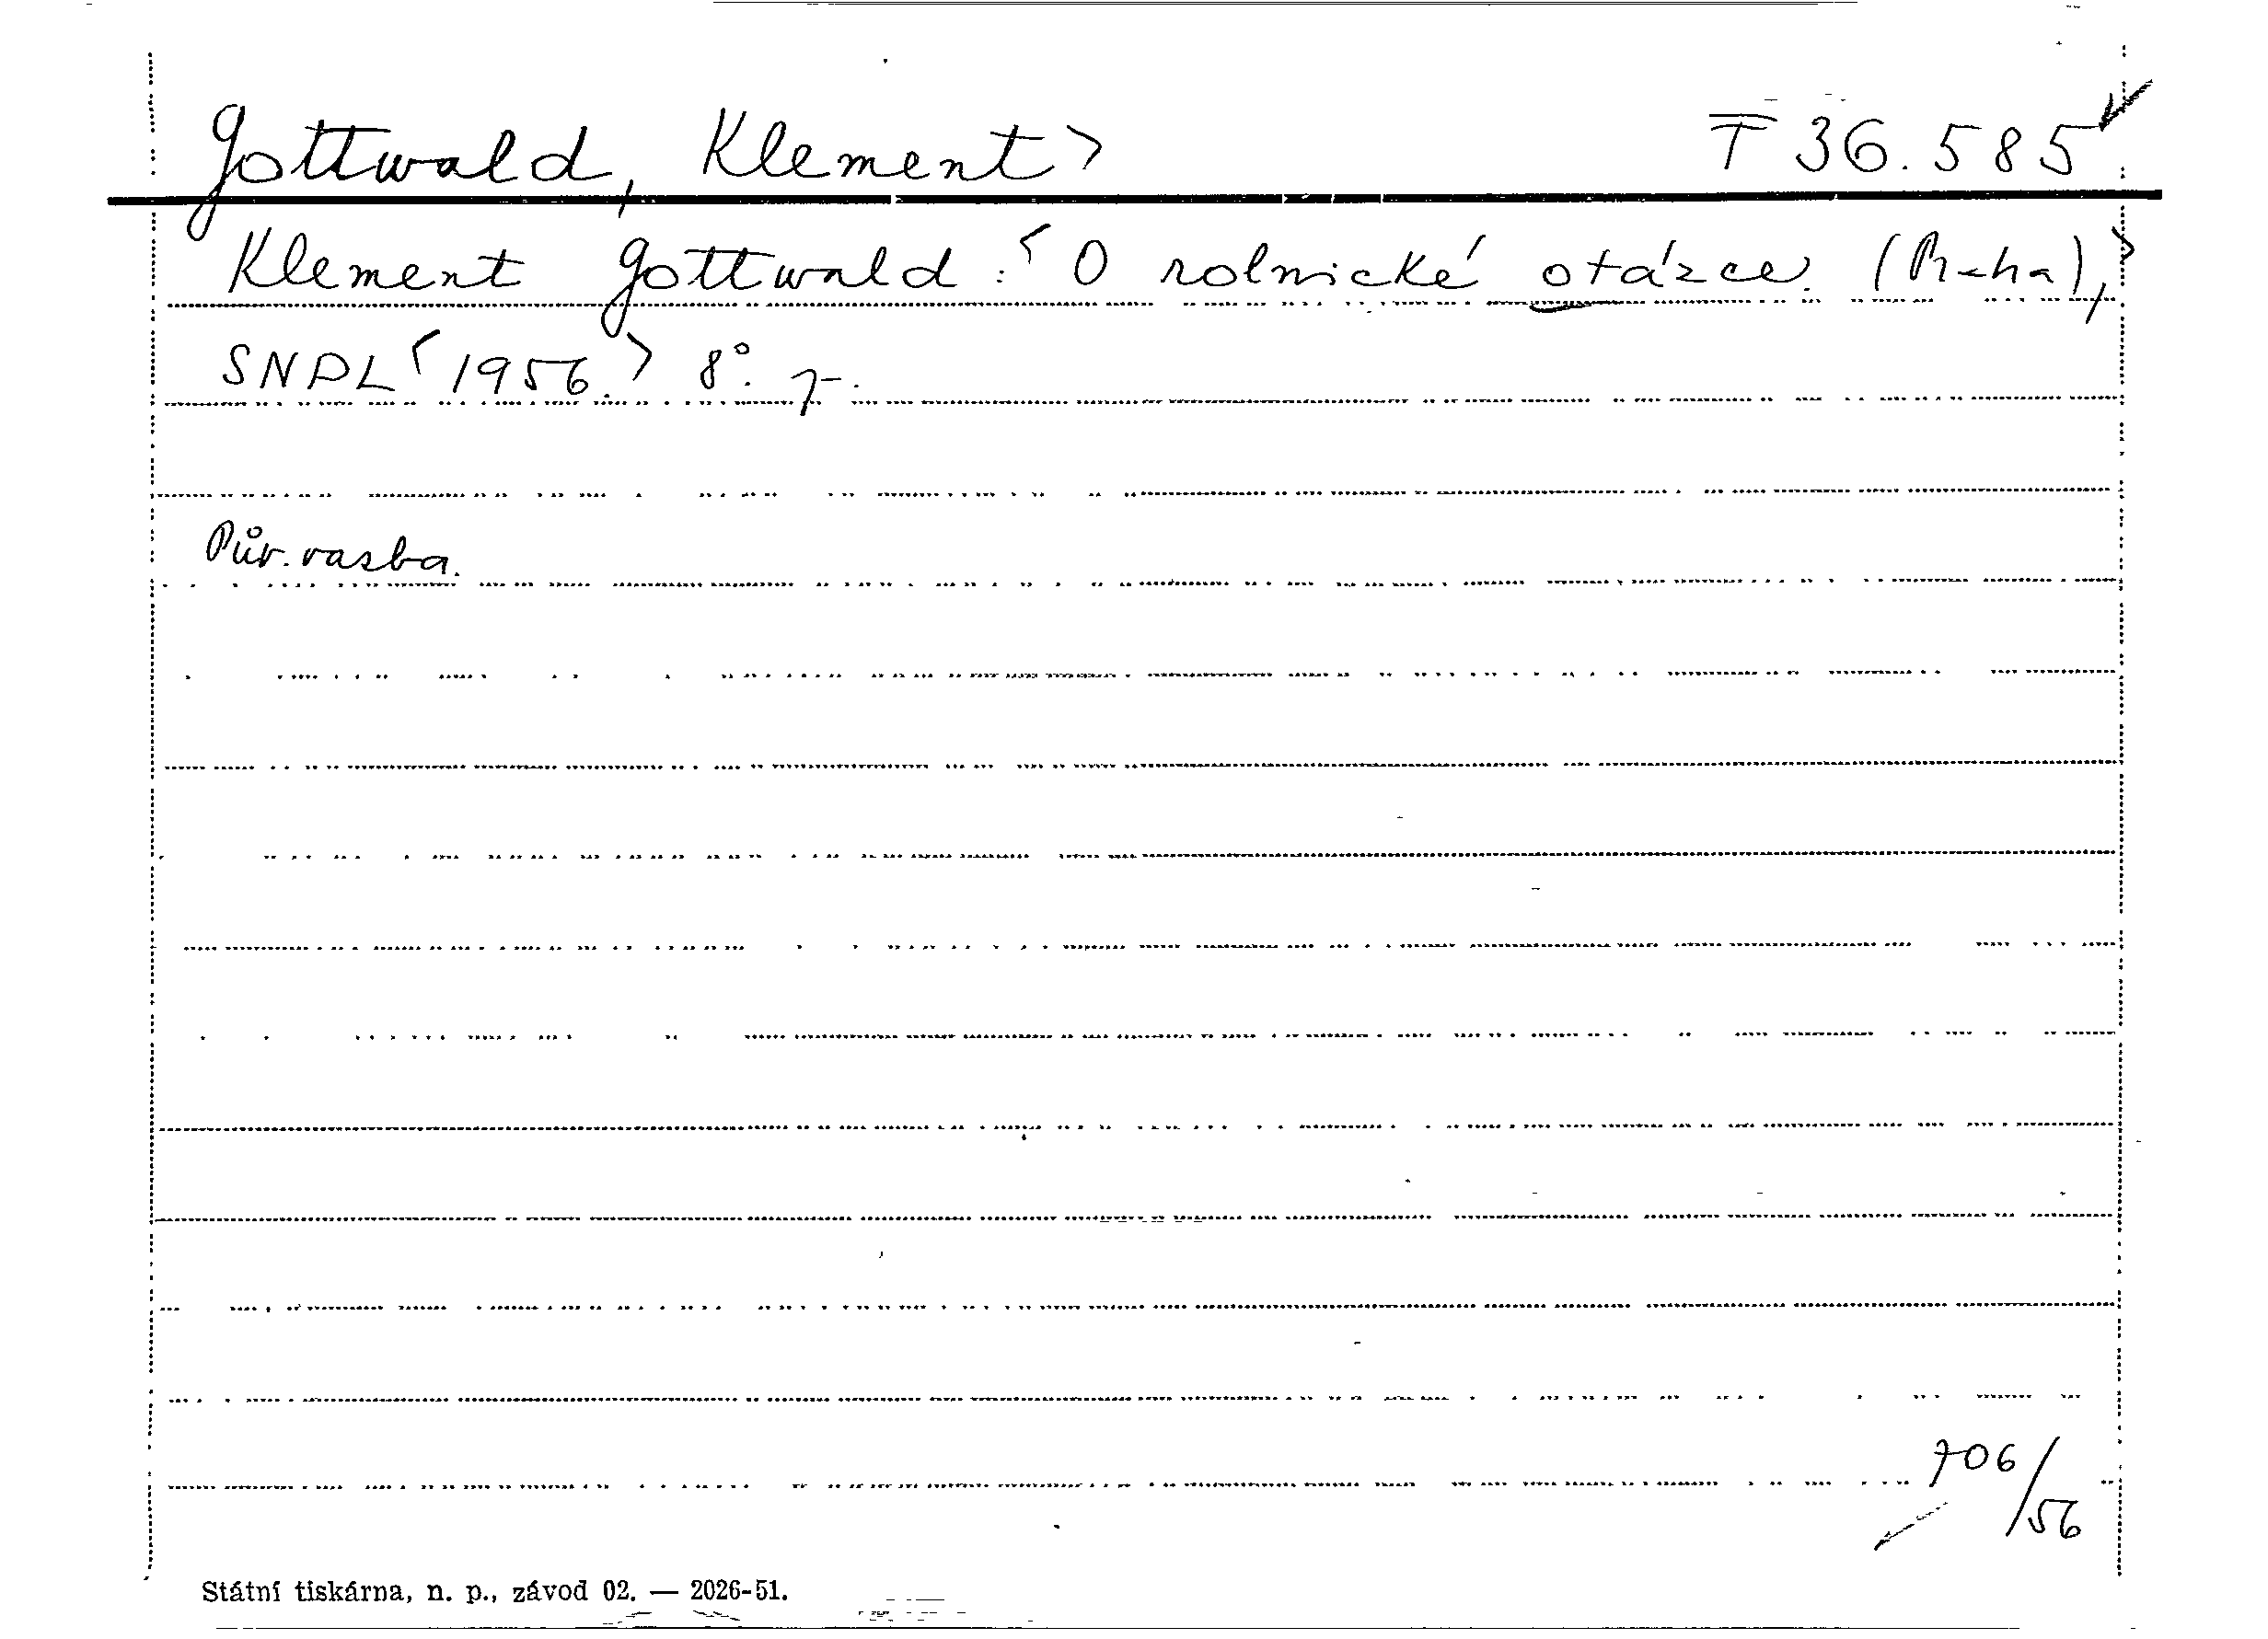 Gottwald, Klement> T 36.585
Klement Gottwald: <O rolnické otázce. (Praha),>
SNPL <1956.> 8°.
Pův. vazba.
706/56
Státní tiskárna, n. p., závod 02. — 2026-51.